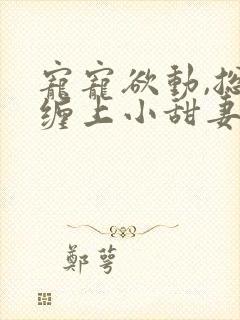 寵寵欲動,總
纏上小甜妻
鄭萼